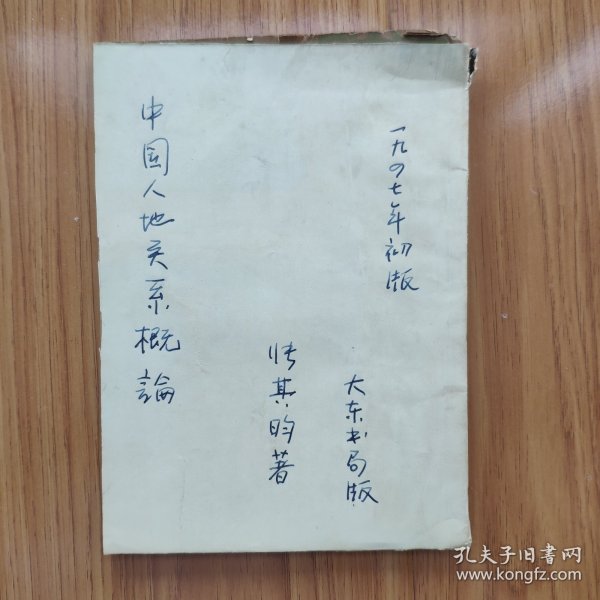 一九四七年初版
大东书局版
张其昀著
中国人地关系概論
孔夫子旧書网
www.kongfz.com